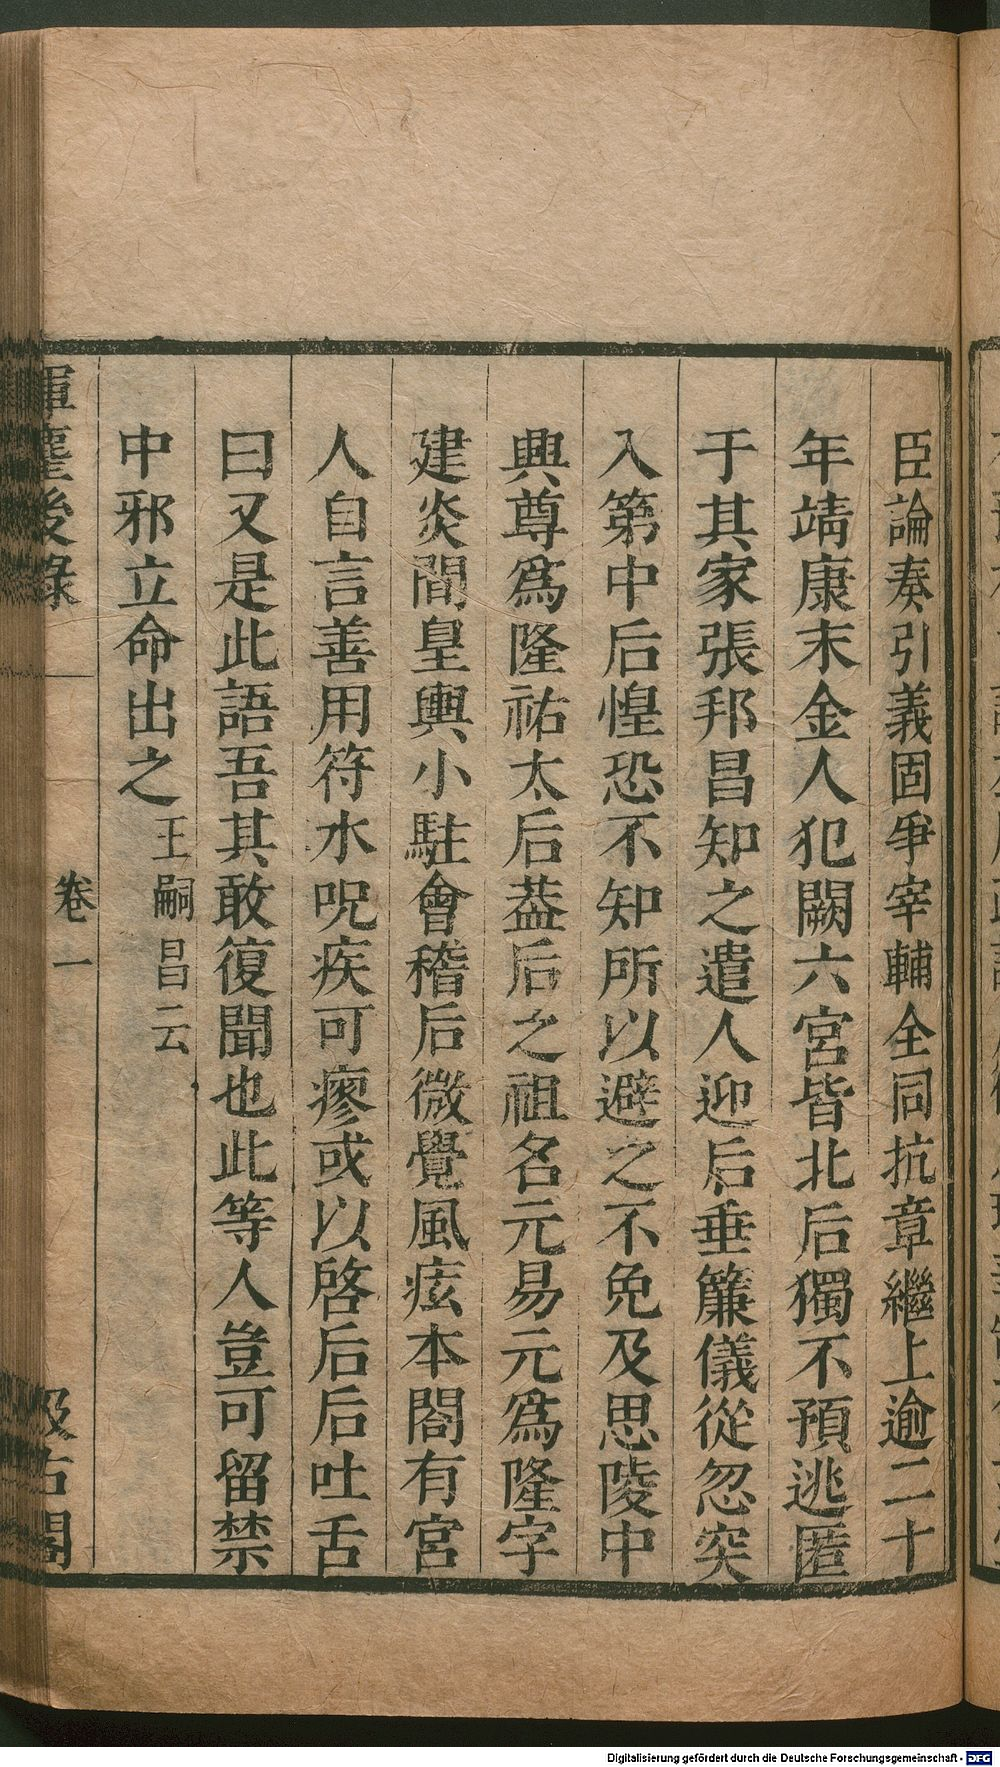 臣論奏引義固爭宰輔全同抗章繼上逾二十
年靖康末金人犯闕六宮皆北后獨不預逃匿
于其家張邦昌知之遣人迎后垂簾儀從忽突
入第中后惶恐不知所以避之不免及思陵中
興尊爲隆祐太后葢后之祖名元易元爲隆字
建炎間皇輿小駐會稽后微覺風痃本閤有宮
人自言善用符水呪疾可瘳或以啓后后吐舌
曰又是此語吾其敢復聞也此等人豈可留禁
中邪立命出之王嗣昌云
揮麈後錄 卷一 汲古閣
Digitalisierung gefördert durch die Deutsche Forschungsgemeinschaft - DFG